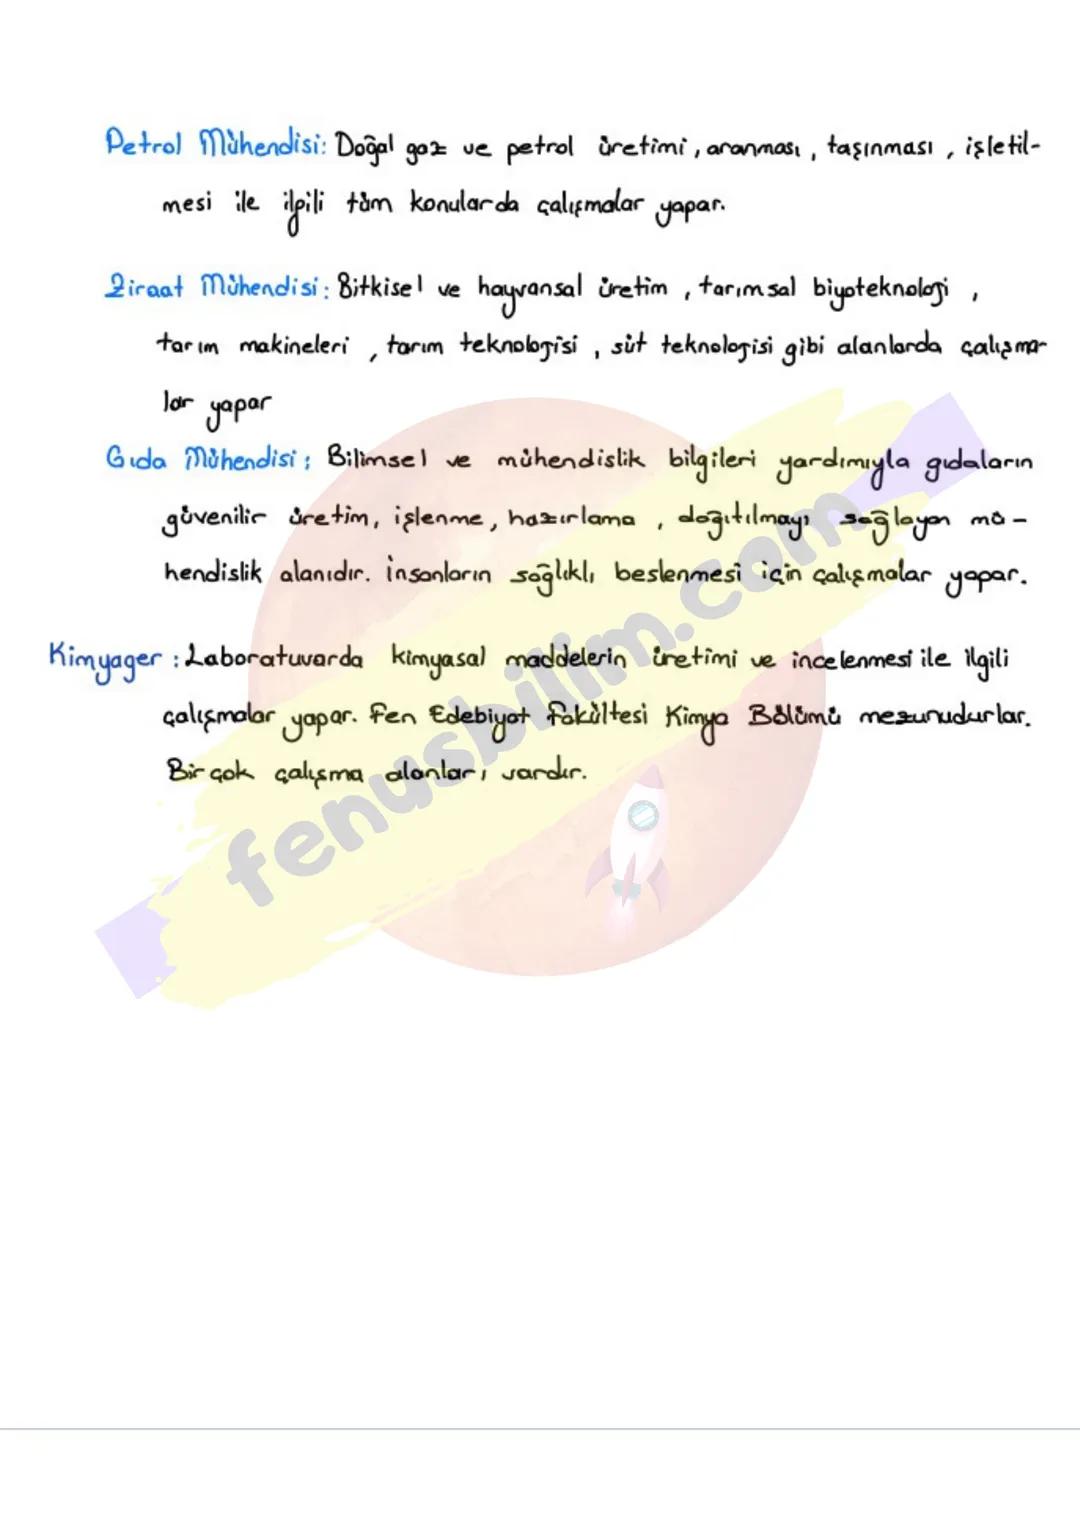 Petrol Mühendisi: Doğal gaz ve petrol üretimi, aranması, taşınması, işletil-
mesi ile ilgili tüm konularda çalışmalar yapar.
Ziraat Mühendisi: Bitkisel ve hayvansal üretim, tarımsal biyoteknoloji,
tarım makineleri, tarım teknolojisi, süt teknolojisi gibi alanlarda çalışma-
lar yapar
Gıda Mühendisi: Bilimsel ve mühendislik bilgileri yardımıyla gıdaların
güvenilir üretim, işlenme, hazırlama, dağıtılmayı sağlayan mü-
hendislik alanıdır. İnsanların sağlıklı beslenmesi için çalışmalar yapar.
Kimyager: Laboratuvarda kimyasal maddelerin üretimi ve incelenmesi ile ilgili
çalışmalar yapar. Fen Edebiyat Fakültesi Kimya Bölümü mezunudurlar.
Bir çok çalışma alanları vardır.
fenusbilim.com